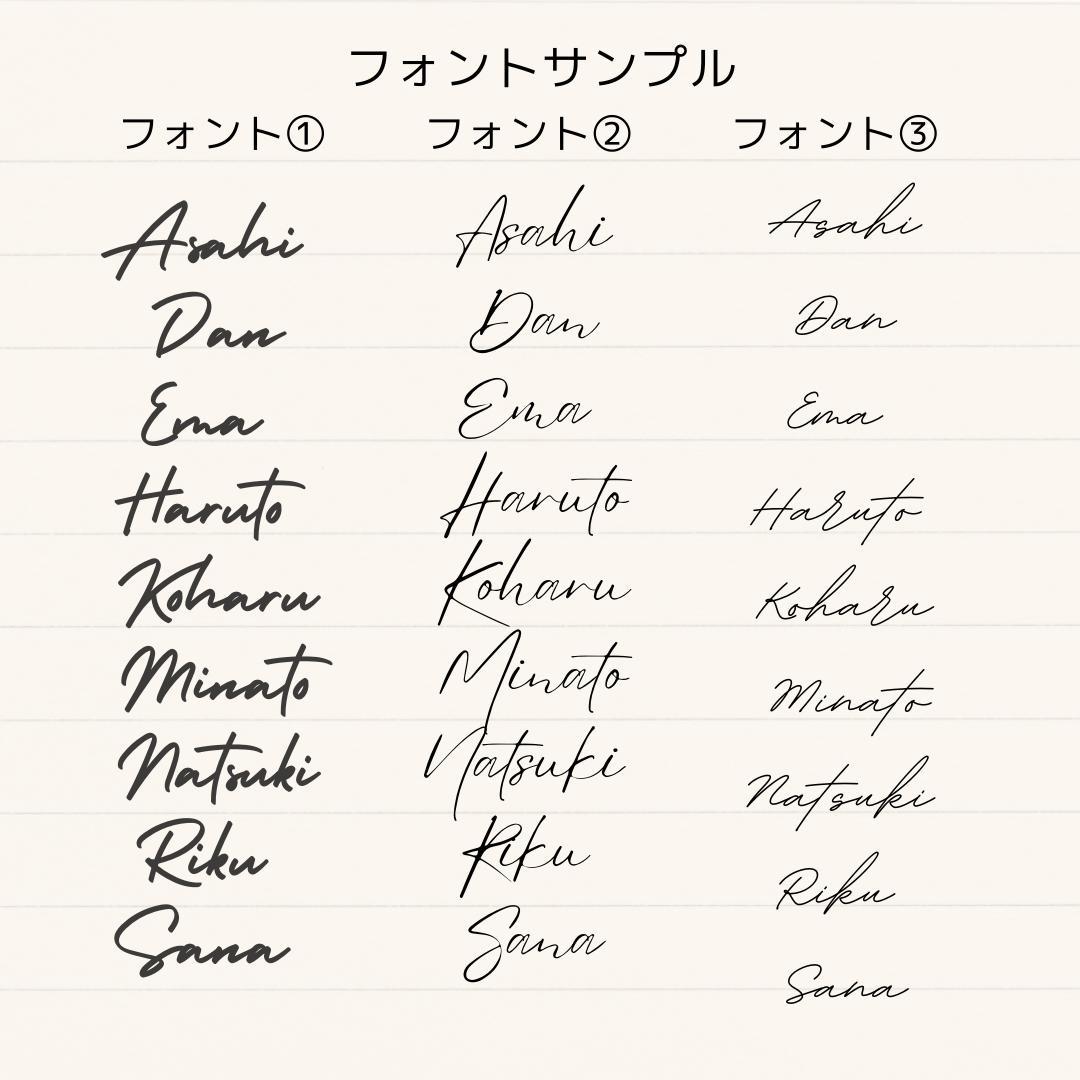 フォントサンプル
フォント① フォント② フォント③
Asahi Asahi Asahi
Dan Dan Dan
Ema Ema Ema
Haruto Haruto Haruto
Koharu Koharu Koharu
Minato Minato Minato
Natsuki Natsuki Natsuki
Riku Riku Riku
Sana Sana Sana